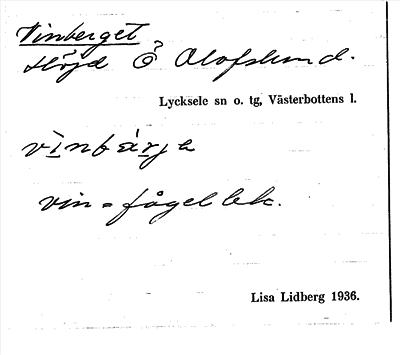 Vinberget
Höjd Ö Olofslund.
Lycksele sn o. tg, Västerbottens l.
vinbärje
vin = fågellek.
Lisa Lidberg 1936.